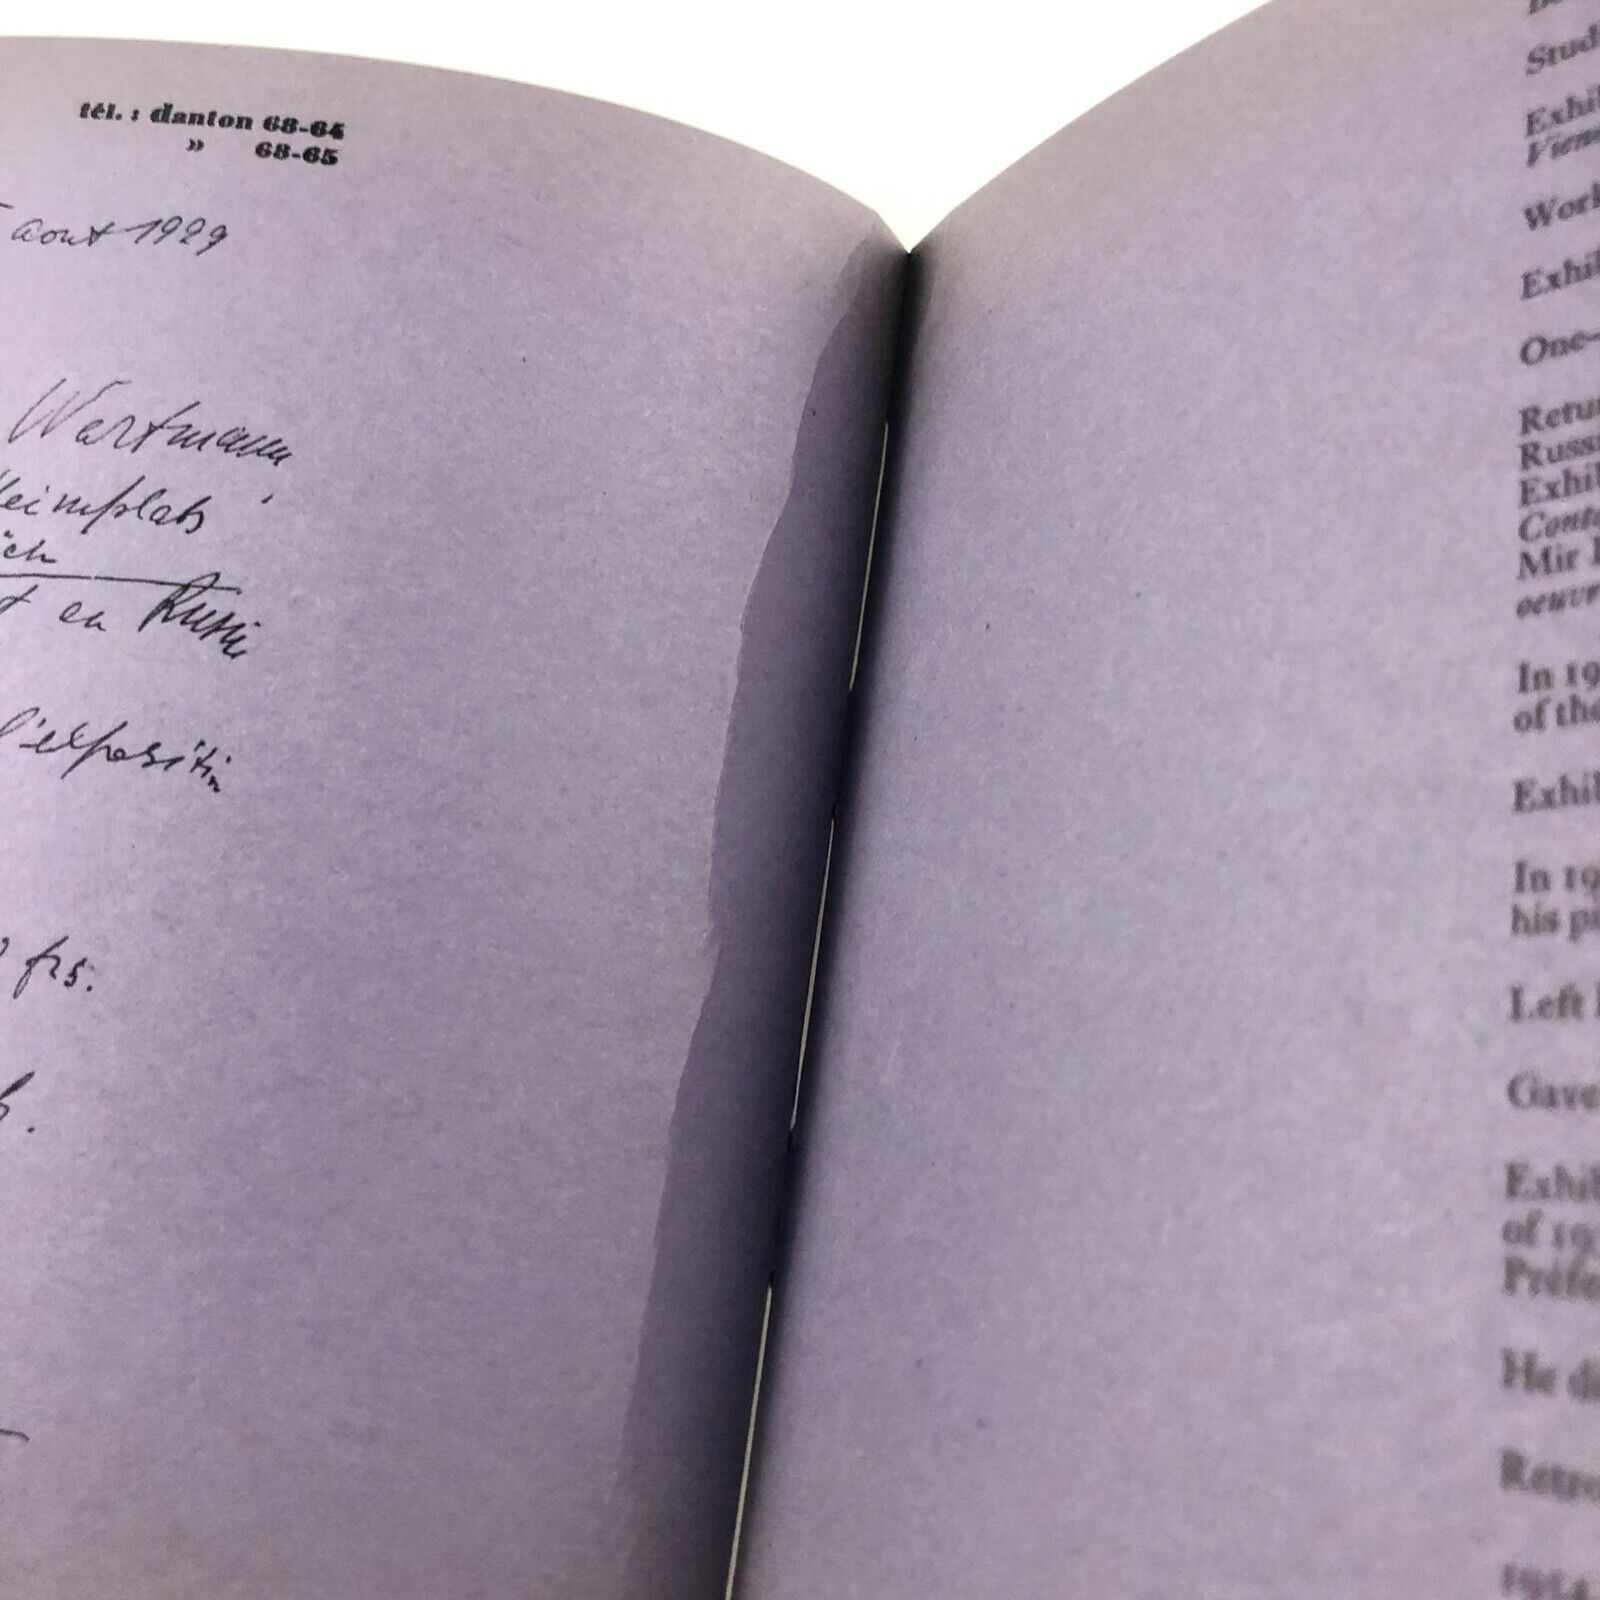 tél. : danton 68-64
» 68-65
aout 1929
Wartmann,
Heimplatz
en Russie
l'exposition
frs.
Exhil
Work
Exhil
One-
Retu
Russ
Exhil
Conte
Mir
oeuvr
In 19
of the
Exhil
In 19
his pi
Left
Gave
Exhil
of 19
Préfa
He di
Retro
1954